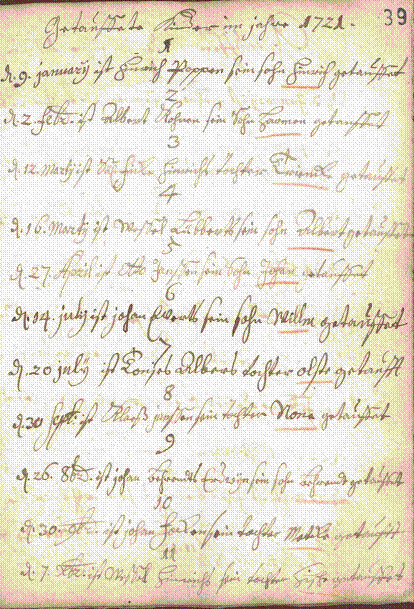 39
Getauffete Kinder im jahre 1721.
1
d. 9. january ist Hinrich Poppen sein sohn Hinrich getauffet
2
d. 2. febr. ist Albert Kohnen sein Sohn Harmen getauffet
3
d. 12. Martij ist Hinrichs tochter getauffet
4
d. 16. Martij ist Wessel Lübberts sein sohn Albert getauffet
5
d. 27. April ist Otto Janssen sein Sohn Johan getauffet
6
d. 14. july ist johan Everts sein sohn Willm getauffet
7
d. 20 july ist Albers tochter olste getaufft
8
d. 30 Sept. ist sein tochter None getauffet
9
d. 26. 8br. ist johan Behrendts sein sohn Behrend getauffet
10
d. 30. ist johan sein tochter Metke getaufft
11
d. 7. ist Wessel Hinrichs sein tochter getauffet